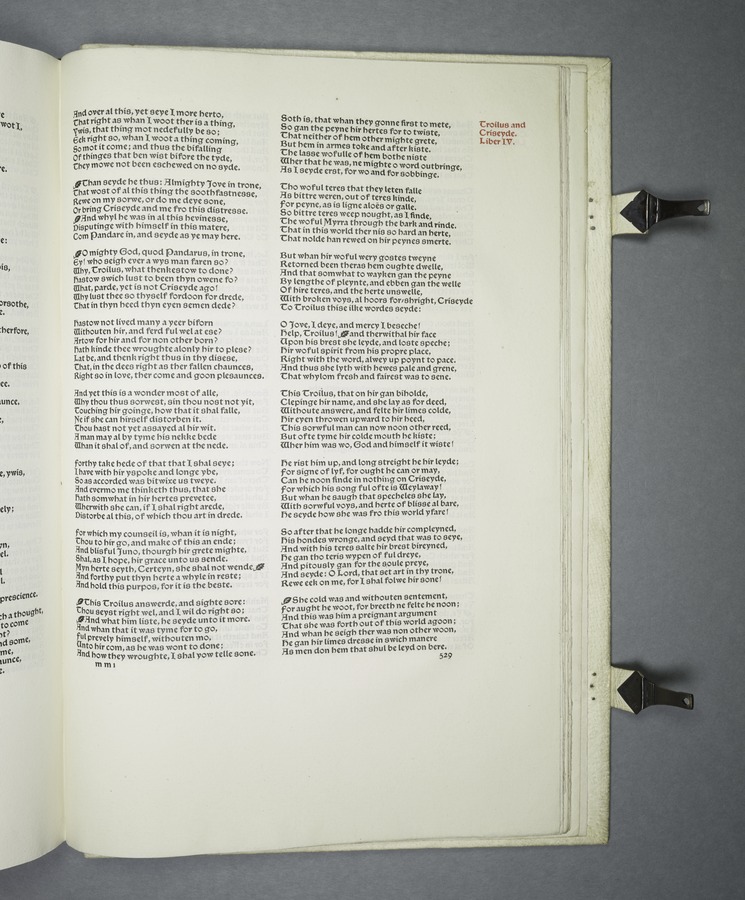 And over al this, yet seye I more herto,
That right as whan I woot ther is a thing,
Ywis, that thing mot nedefully be so;
Eek right so, whan I woot a thing coming,
So mot it come; and thus the bifalling
Of thinges that ben wist bifore the tyde,
They mowe not been eschewed on no syde.
Than seyde he thus: Almighty Jove in trone,
That wost of al this thing the soothfastnesse,
Rewe on my sorwe, or do me deye sone,
Or bring Criseyde and me fro this distresse.
And whyl he was in al this hevinesse,
Disputinge with himself in this matere,
Com Pandare in, and seyde as ye may here.
O mighty God, quod Pandarus, in trone,
Ey! who seigh ever a wys man faren so?
Why, Troilus, what thenkestow to done?
Hastow swich lust to been thyn owene fo?
What, parde, yet is not Criseyde ago!
Why lust thee so thyself fordoon for drede,
That in thyn heed thyn eyen semen dede?
Hastow not lived many a yeer biforn
Withouten hir, and ferd ful wel at ese?
Artow for hir and for non other born?
Hath kinde thee wroughte alonly hir to plese?
Lat be, and thenk right thus in thy disese,
That, in the dees right as ther fallen chaunces,
Right so in love, ther come and goon plesaunces.
And yet this is a wonder most of alle,
Why thou thus sorwest, sin thou nost not yit,
Touching hir goinge, how that it shal falle,
Ne if she can hirself distorben it.
Thou hast not yet assayed al hir wit.
A man may al by tyme his nekke bede
Whan it shal of, and sorwen at the nede.
Forthy take hede of that that I shal seye;
I have with hir yspoke and longe ybe,
So as accorded was bitwixe us tweye.
And evermo me thinketh thus, that she
Hath somwhat in hir hertes prevetee,
Wherwith she can, if I shal right arede,
Distorbe al this, of which thou art in drede.
For which my counseil is, whan it is night,
Thou to hir go, and make of this an ende;
And blisful Juno, thourgh hir grete mighte,
Shal, as I hope, hir grace unto us sende.
Myn herte seyth, Certeyn, she shal not wende,
And forthy put thyn herte a whyle in reste;
And hold this purpos, for it is the beste.
This Troilus answerde, and sighte sore:
Thou seyst right wel, and I wil do right so;
And what him liste, he seyde unto it more.
And whan that it was tyme for to go,
Ful prevely himself, withouten mo,
Unto hir com, as he was wont to done;
And how they wroughte, I shal yow telle sone.
m m 1
Soth is, that whan they gonne first to mete,
So gan the peyne hir hertes for to twiste,
That neither of hem other mighte grete,
But hem in armes toke and after kiste.
The lasse wofulle of hem bothe niste
Wher that he was, ne mighte o word outbringe,
As I seyde erst, for wo and for sobbinge.
Tho woful teres that they leten falle
As bittre weren, out of teres kinde,
For peyne, as is ligne aloës or galle.
So bittre teres weep nought, as I finde,
The woful Myrra through the bark and rinde.
That in this world ther nis so hard an herte,
That nolde han rewed on hir peynes smerte.
But whan hir woful wery gostes tweyne
Retorned been theras hem oughte dwelle,
And that somwhat to wayken gan the peyne
By lengthe of pleynte, and ebben gan the welle
Of hire teres, and the herte unswelle,
With broken voys, al hoors forshright, Criseyde
To Troilus thise ilke wordes seyde:
O Jove, I deye, and mercy I beseche!
Help, Troilus! and therwithal hir face
Upon his brest she leyde, and loste speche;
Hir woful spirit from his propre place,
Right with the word, alwey up poynt to pace.
And thus she lyth with hewes pale and grene,
That whylom fresh and fairest was to sene.
This Troilus, that on hir gan biholde,
Clepinge hir name, and she lay as for deed,
Withoute answere, and felte hir limes colde,
Hir eyen throwen upward to hir heed,
This sorwful man can now noon other reed,
But ofte tyme hir colde mouth he kiste;
Wher him was wo, God and himself it wiste!
He rist him up, and long streight he hir leyde;
For signe of lyf, for ought he can or may,
Can he noon finde in nothing on Criseyde,
For which his song ful ofte is Weylaway!
But whan he saugh that specheles she lay,
With sorwful voys, and herte of blisse al bare,
He seyde how she was fro this world yfare!
So after that he longe hadde hir compleyned,
His hondes wronge, and seyd that was to seye,
And with his teres salte hir brest bireyned,
He gan tho teris wypen of ful dreye,
And pitously gan for the soule preye,
And seyde: O Lord, that set art in thy trone,
Rewe eek on me, for I shal folwe hir sone!
She cold was and withouten sentement,
For aught he woot, for breeth ne felte he noon;
And this was him a preignant argument
That she was forth out of this world agoon;
And whan he seigh ther was non other woon,
He gan hir limes dresse in swich manere
As men don hem that shul be leyd on bere.
529
Troilus and
Criseyde.
Liber IV.